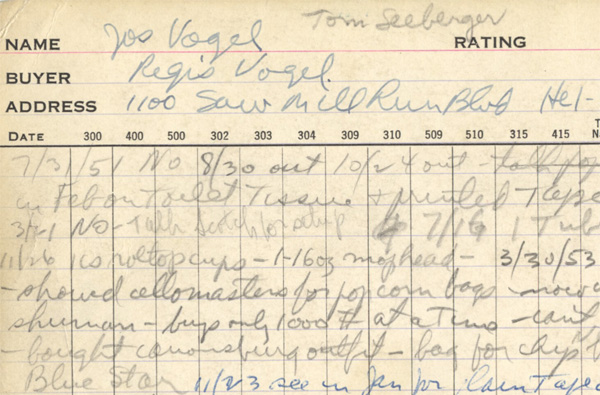 Tom Seeberger
NAME Jos Vogel RATING
BUYER Regis Vogel.
ADDRESS 1100 Saw Mill Run Blvd Hel-
DATE 300 400 500 302 303 304 309 310 509 510 315 415 T
N
7/31/51 No 8/30 out 10/24 out - talk pop
in Feb on Toilet Tissue + printed Tape
3/21 No - Talk Scotch for setup 7/16 1 Tub
11/26 1cs rolltop cups - 1-16oz - 3/30/53
- showed cellomasters for pop corn bags -
- buys only 1000 # at a time - can't
- bought canonsburg outfit - bag for chip
Blue Star 11/23 see in Jan for plain tape